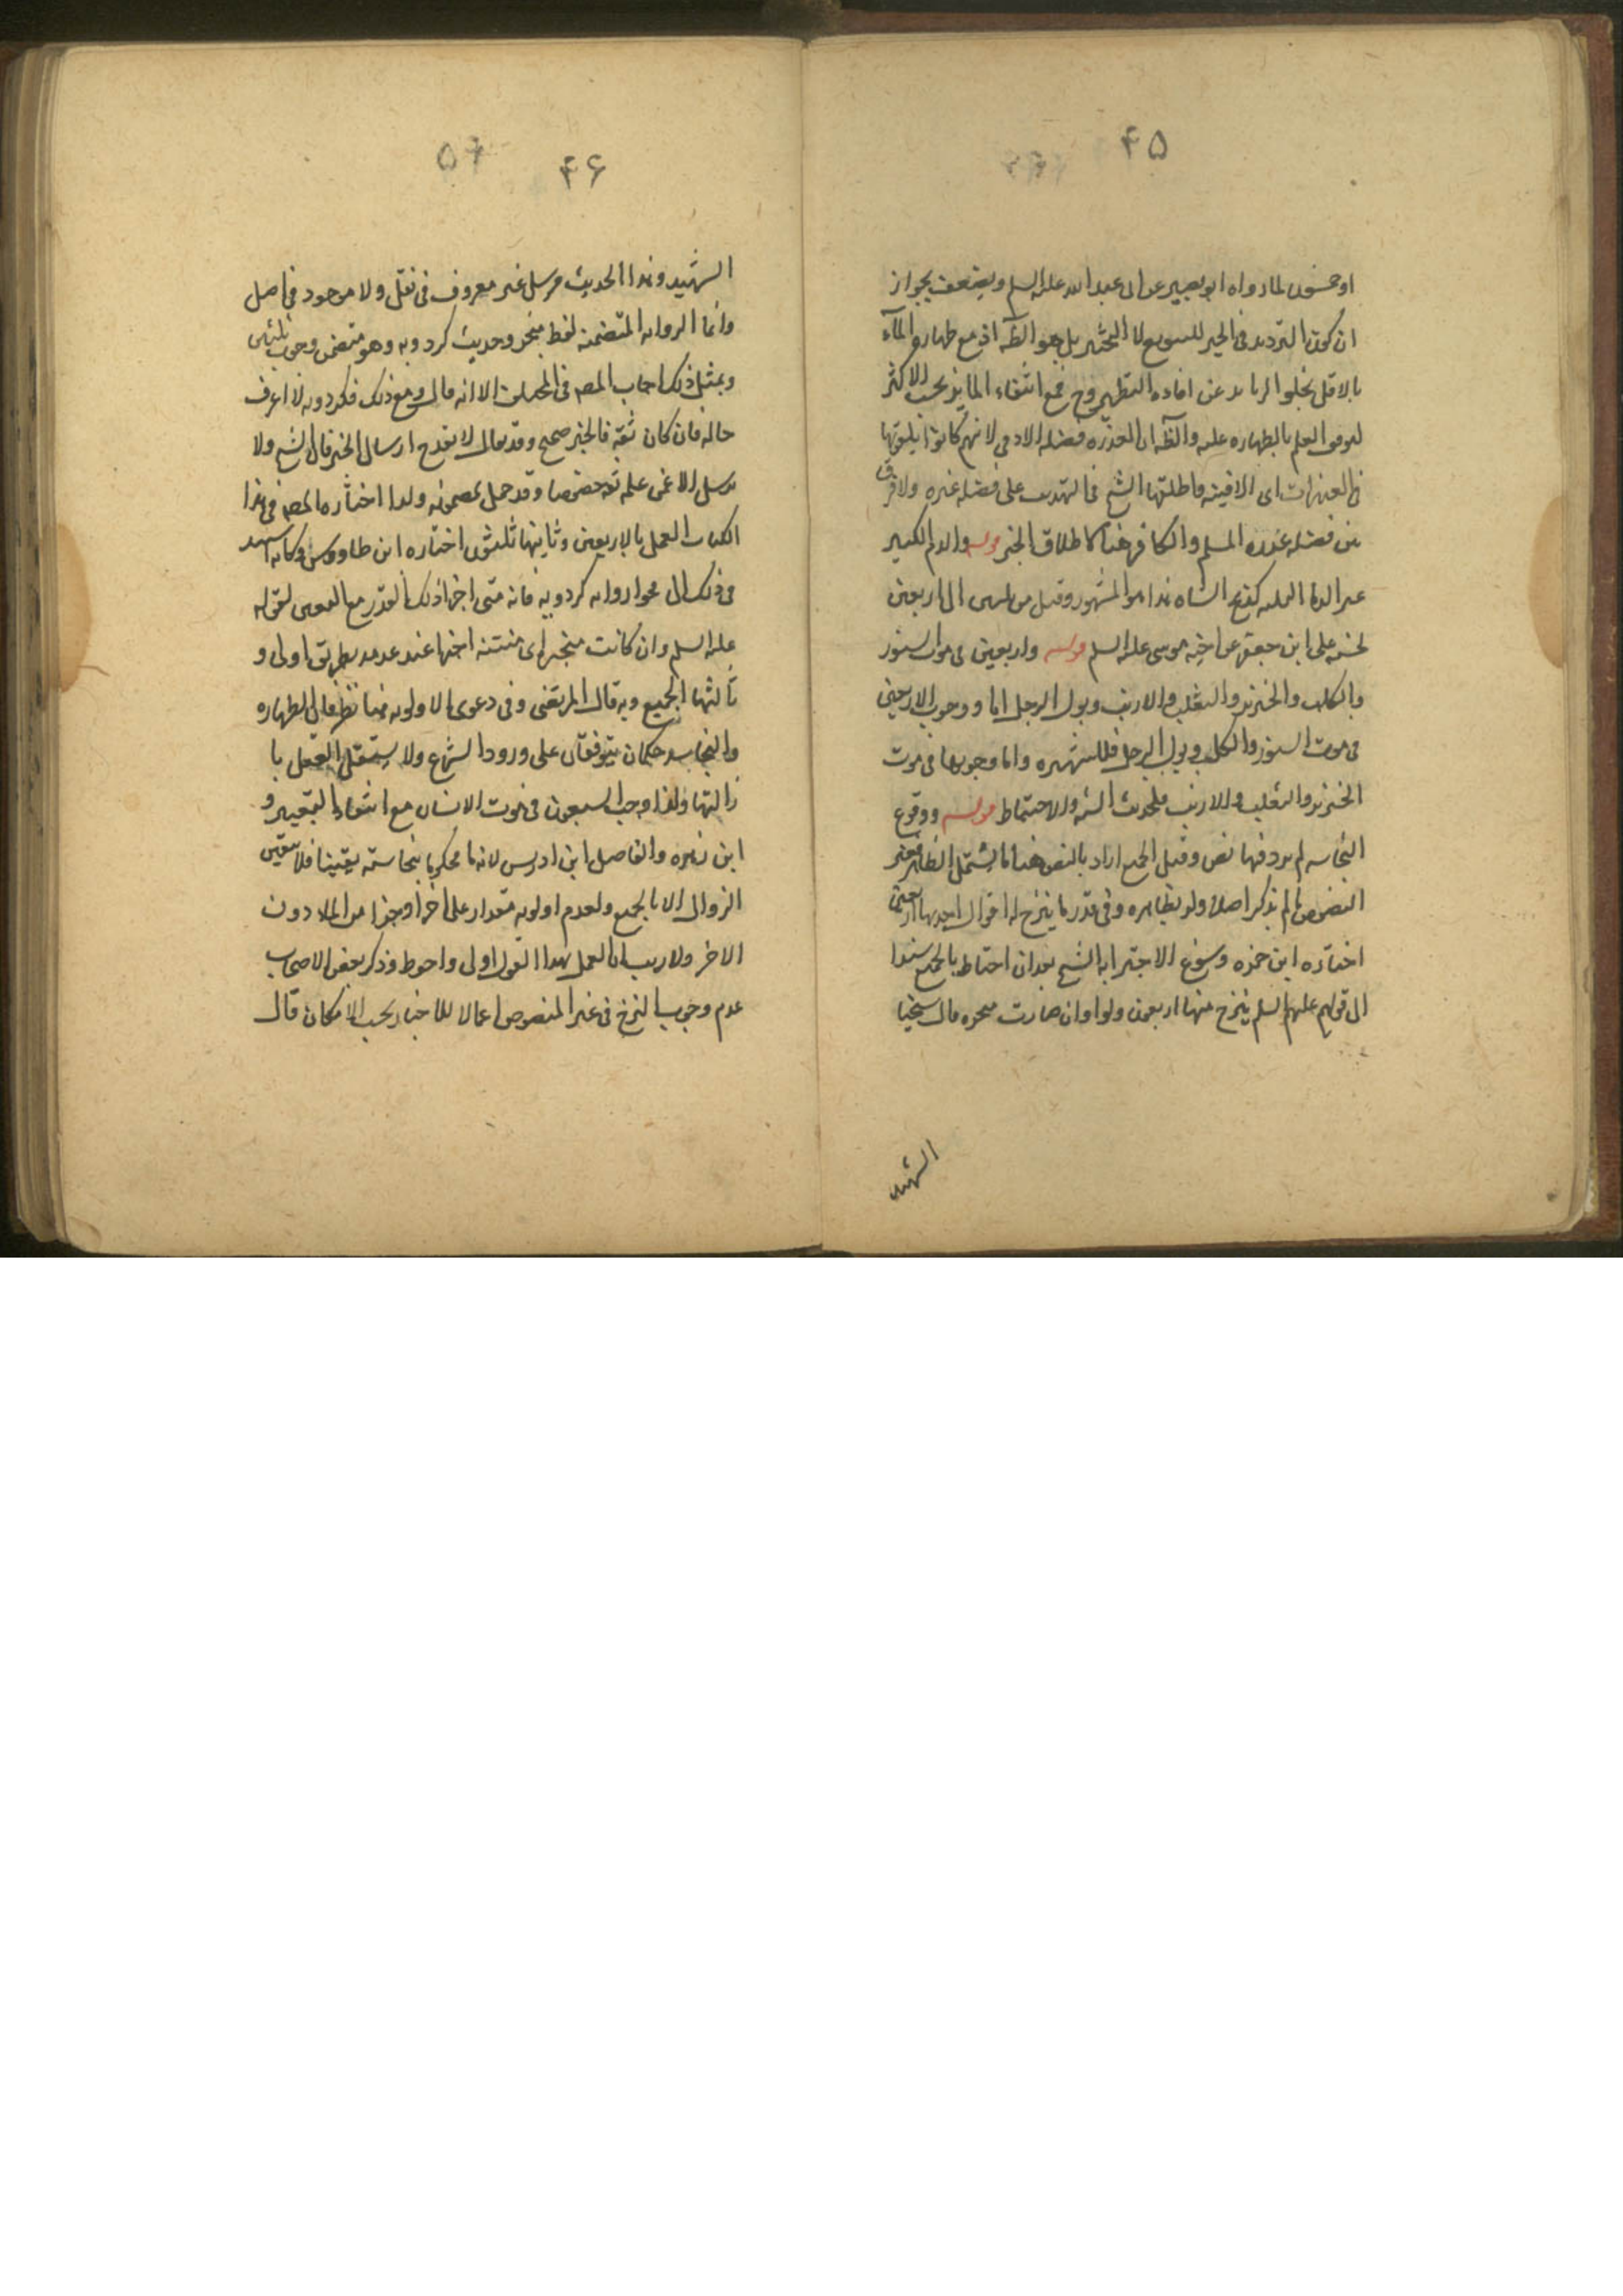 ۴۵
او خمسون لما رواه ابو بصير عن ابى عبد الله عليه السلم ويضعف بجواز
ان يكون الترديد فى الخبر للتنويع لا التخيير بل هو الظ اذ مع طهارة المآء
بالاقل يخلو الزايد عن افاده التطهير وح فمع انتفاء المايز يجب الاكثر
العلم بالطهاره عليه والظ ان العذره فضله الادمى لانهم كانوا يلقونها
فى العذرات اى الافنية واطلقها الشيخ فى التهذيب على فضله غيره ولا فرق
بين فضله عذره المسلم والكافر هنا لاطلاق الخبر قوله والدم الكثير
غير الدماء الثلثه كذبح الشاه هذا هو المشهور وقيل من ثلثين الى اربعين
لخبر على ابن جعفر عن اخيه موسى عليه السلم قوله واربعين فى موت السنور
والكلب والخنزير والثعلب والارنب وبول الرجل اما وجوب الاربعين
فى موت السنور والكلب وبول الرجل فللشهره واما وجوبها فى موت
الخنزير والثعلب والارنب فلحديث الشبه والاحتياط قوله ووقوع
النجاسه لم يرد فيها نص وقيل الجميع اراد بالنص هنا ما يشتمل الظاهر فغير
المنصوص ما لم يذكر اصلا ولو بظاهره وفى قدر ما ينزح له اقوال احديها اربعين
اختاره ابن حمزه وسوغ الاجتزا به الشيخ بعد ان احتاط بالجميع سندا
الى قولهم عليهم السلم ينزح منها اربعون دلوا وان صارت مبخره قال شيخنا
الشهيد
۴۶
۵۶
الشهيد وهذا الحديث مرسل غير معروف فى نقل ولا موجود فى اصل
وانما الروايه المتضمنه لفظ مبخر وحديث كردويه وهو متضمن وجوب ثلثين
وبمثل ذلك اجاب المصـ فى الا انه قال ومع ذلك فكردويه لا اعرف
حاله فان كان ثقه فالخبر صحيح وقد يقال لا يقدح ارسال الخبر فان الشيخ ولا
يرسل الا عن علم ثقه خصوصا وقد عمل بمضمونه ولذا اختاره المصـ فى هذا
الكتاب العمل بالاربعين وثانيها ثلثون اختاره ابن طاووس وكانه استند
فى ذلك الى فحوا روايه كردويه فانه متى اجزا ذلك القدر مع لقوله
عليه السلم وان كانت مبخره اى منتنه اجزا عند عدمه بطريق اولى و
ثالثها الجميع وبه قال المرتضى وفى دعوى الاولويه هنا نظر فان الطهاره
والنجاسه حكمان يتوقفان على ورود الشرع ولا يستقل العقل با
زالتها ولهذا وجب السبعون فى موت الانسان مع انتفاء التغيير و
ابن زهره والفاضل ابن ادريس لانه ما محكوم بنجاسته يقينا فلا يتقين
الزوال الا بالجميع ولعدم اولويه مقدار على اخر او جزا من الماء دون
الاخر ولا ريب ان العمل بهذا القول اولى واحوط وذكر بعض الاصحاب
عدم وجوب النزح فى غير المنصوص اعمالا للاخبار بحسب الامكان قال